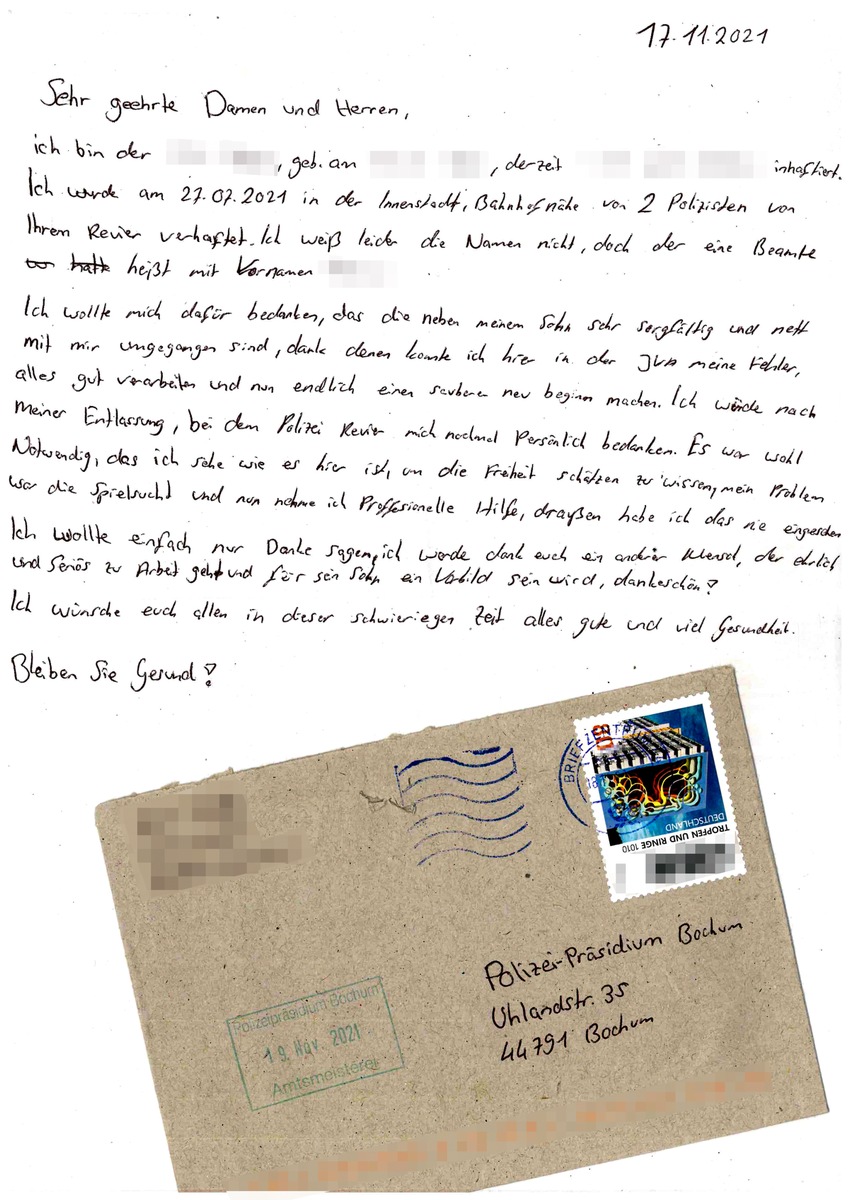 17.11.2021
Sehr geehrte Damen und Herren,
ich bin der , geb. am , derzeit inhaftiert.
Ich wurde am 27.07.2021 in der Innenstadt, Bahnhofnähe von 2 Polizisten von
Ihrem Revier verhaftet. Ich weiß leider die Namen nicht, doch der eine Beamte
hatte heißt mit Vornamen
Ich wollte mich dafür bedanken, das die neben meinem Sohn sehr sorgfältig und nett
mit mir umgegangen sind, dank denen konnte ich hier in der JVA meine Fehler,
alles gut verarbeiten und nun endlich einen sauberen neu beginn machen. Ich würde nach
meiner Entlassung, bei dem Polizei Revier mich nochmal Persönlich bedanken. Es war wohl
Notwendig, das ich sehe wie es hier ist, um die Freiheit schätzen zu wissen, mein Problem
war die Spielsucht und nun nehme ich Proffesionelle Hilfe, draußen habe ich das nie eingesehen
Ich wollte einfach nur Danke sagen, ich werde dank euch ein anderer Mensch, der ehrlich
und Seriös zu Arbeit geht und für sein Sohn ein Vorbild sein wird, dankeschön!
Ich wünsche euch allen in dieser schwieriegen Zeit alles gute und viel Gesundheit.
Bleiben Sie Gesund!
BRIEFZENTR
DEUTSCHLAND
TROPFEN UND RINGE 1010
Polizei-Präsidium Bochum
Uhlandstr. 35
44791 Bochum
Polizeipräsidium Bochum
19. Nov. 2021
Amtsmeisterei